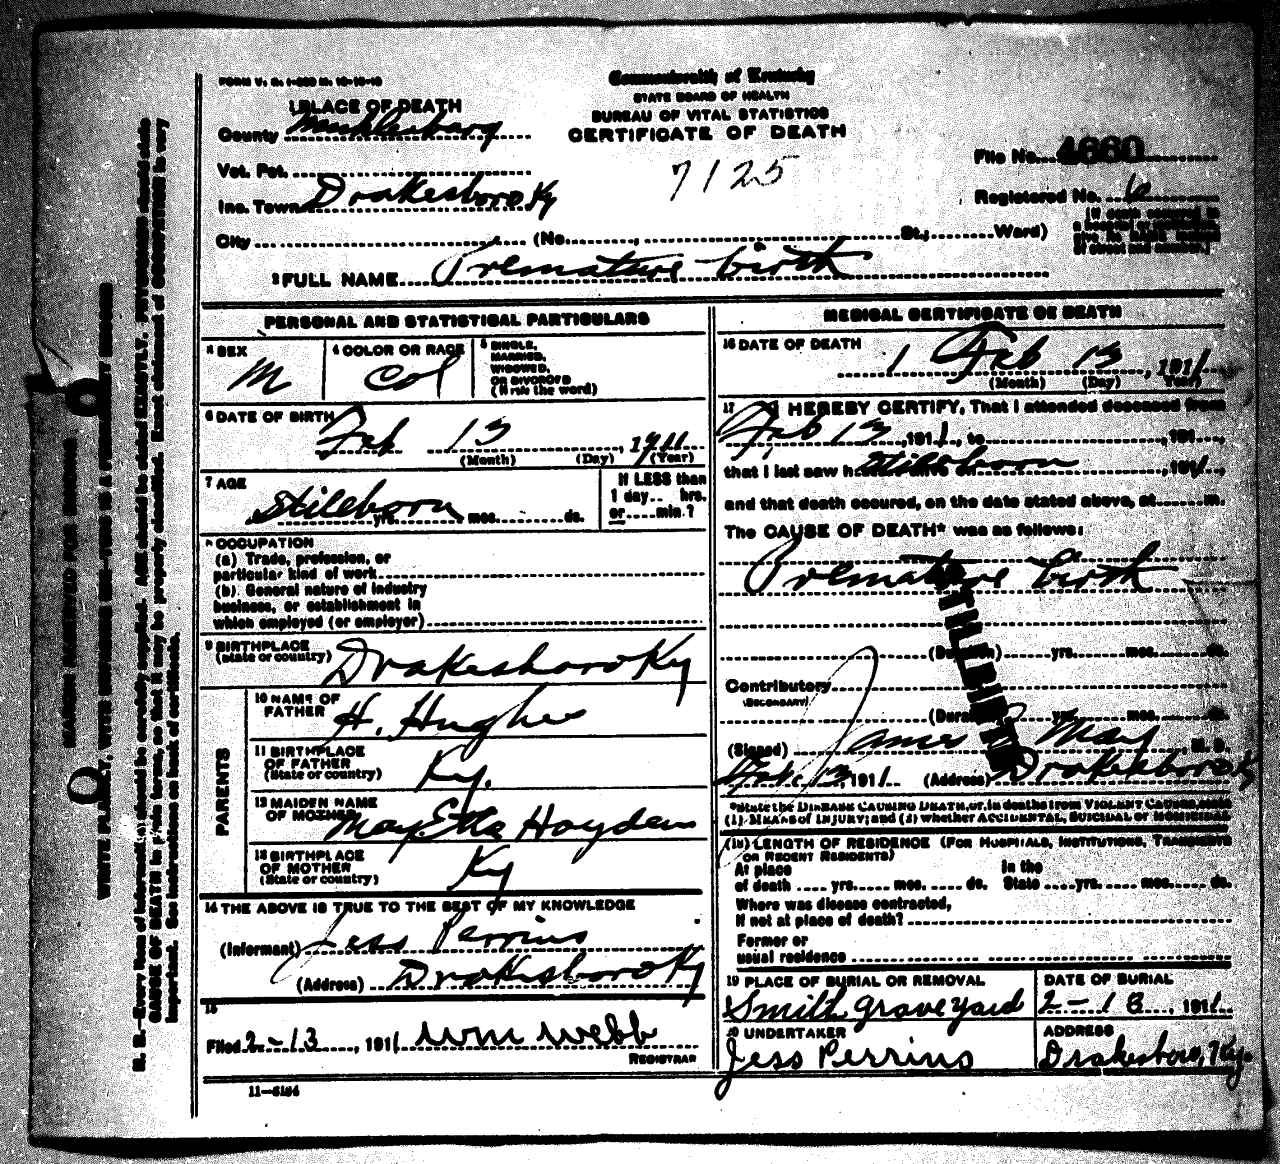 FORM V. S. 1-
Commonwealth of Kentucky
STATE BOARD OF HEALTH
BUREAU OF VITAL STATISTICS
CERTIFICATE OF DEATH
7125
File No. 4660
Registered No. 6
1 PLACE OF DEATH
County Muhlenberg
Vot. Pct.
Inc. Town Drakesboro Ky
City (No. , St.; Ward)
[If death occurred in
2 FULL NAME Premature birth
PERSONAL AND STATISTICAL PARTICULARS
3 SEX
M
4 COLOR OR RACE
Col
5 SINGLE,
MARRIED,
WIDOWED,
OR DIVORCED
(Write the word)
6 DATE OF BIRTH
Feb 13, 1911
(Month) (Day) (Year)
7 AGE
Stillborn
yrs. mos. ds.
If LESS than
1 day.. hrs.
or.....min.?
8 OCCUPATION
(a) Trade, profession, or
particular kind of work
(b) General nature of industry
business, or establishment in
which employed (or employer)
9 BIRTHPLACE
(State or country)
Drakesboro Ky
PARENTS
10 NAME OF
FATHER
H. Hughes
11 BIRTHPLACE
OF FATHER
(State or country)
Ky.
12 MAIDEN NAME
OF MOTHER
May Etta Hayden
13 BIRTHPLACE
OF MOTHER
(State or country)
Ky
14 THE ABOVE IS TRUE TO THE BEST OF MY KNOWLEDGE
(Informant) Jess Perrins
(Address) Drakesboro Ky
15
Filed 2-13, 1911 Wm Webb
REGISTRAR
11-
MEDICAL CERTIFICATE OF DEATH
16 DATE OF DEATH
1 Feb 13, 1911
(Month) (Day) (Year)
17 I HEREBY CERTIFY, That I attended deceased from
Feb 13, 1911, to , 191 ,
that I last saw h stillborn , 191 ,
and that death occured, on the date stated above, at m.
The CAUSE OF DEATH* was as follows:
Premature birth
STILLBIRTH
(Duration) yrs. mos. ds.
Contributory
(SECONDARY)
(Duration) yrs. mos. ds.
(Signed) James May, M. D.
Feb 13, 1911 (Address) Drakesboro Ky
*State the DISEASE CAUSING DEATH, or, in deaths from VIOLENT CAUSES, state
(1) MEANS of INJURY; and (2) whether ACCIDENTAL, SUICIDAL or HOMICIDAL
(18) LENGTH OF RESIDENCE (FOR HOSPITALS, INSTITUTIONS, TRANSIENTS
OR RECENT RESIDENTS)
At place
of death yrs. mos. ds.
In the
State yrs. mos. ds.
Where was disease contracted,
if not at place of death?
Former or
usual residence
19 PLACE OF BURIAL OR REMOVAL
Smith graveyard
DATE OF BURIAL
2-13, 1911
20 UNDERTAKER
Jess Perrins
ADDRESS
Drakesboro, Ky.
MARGIN RESERVED FOR BINDING
WRITE PLAINLY, WITH UNFADING INK—THIS IS A PERMANENT RECORD
N. B.—Every item of information should be carefully supplied. AGE should be stated EXACTLY. PHYSICIANS should state
CAUSE OF DEATH in plain terms, so that it may be properly classified. Exact statement of OCCUPATION is very
important. See instructions on back of certificate.